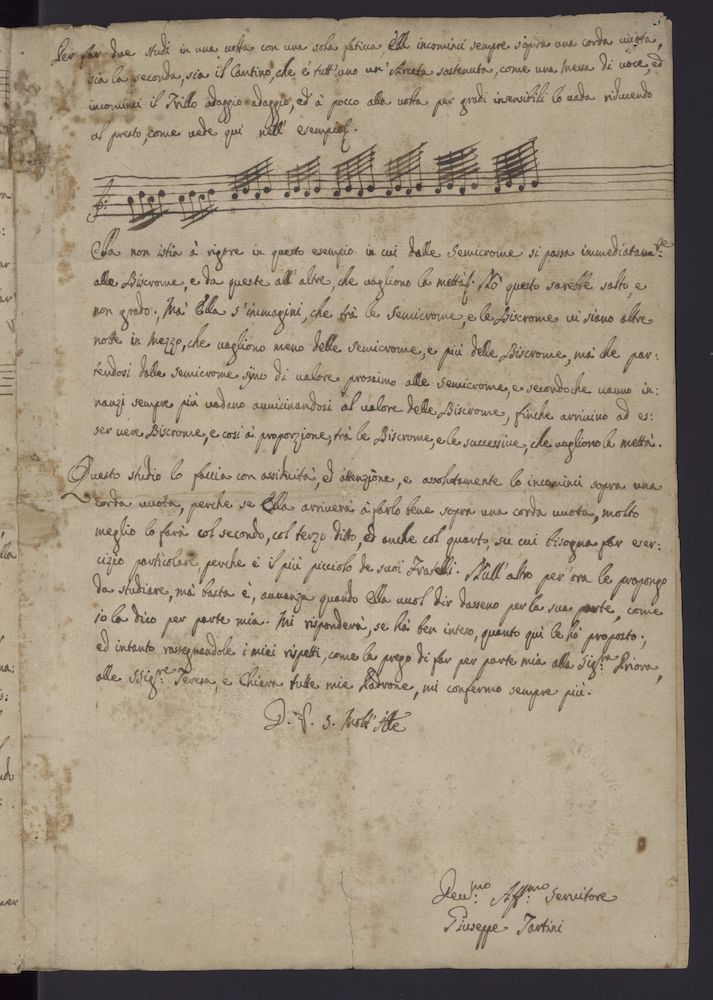 Per far due studi in una volta con una sola fatica Ella incominci sempre sopra una corda vuota,
sia la seconda, sia il Cantino, che é tutt'uno un'Arcata sostenuta, come una Messa di voce, ed
incominci il Trillo adaggio adaggio, ed à pocco alla volta per gradi insensibili lo vada riducendo
al presto, come vede quì nell'esempio.
Ella non istia à rigore in questo esempio in cui dalle Semicrome si passa immediatam:te
alle Biscrome, e da queste all'altre, che vagliono la mettà. Nò questo sarebbe salto, e
non grado; Mà Ella s'immagini, che trà le Semicrome, e le Biscrome vi siano altre
notte in mezzo, che vagliono meno delle Semicrome, e più delle Biscrome, mà che par:
tendosi dalle semicrome siino di valore prossimo alle semicrome, e secondoche vanno in:
nanzi sempre più vadano avvicinandosi al valore delle Biscrome, finche arrivino ad es:
ser vere Biscrome, e così à proporzione, trà le Biscrome, e le successive, che vagliono la mettà.
Questo studio lo faccia con assiduità, ed attenzione, e assolutamente lo incominci sopra una
corda vuota, perche se Ella arriverà à farlo bene sopra una corda vuota, molto
meglio lo farà col secondo, col terzo ditto, ed anche col quarto, su cui bisogna far eser-
cizio particolare, perche è il più picciolo de suoi Fratelli. Null'altro per ora le propongo
da studiare, mà basta è, avvanza quando Ella vuol dir dasseno per la sua parte, come
io la dico per parte mia. Mi risponderà, se hà ben inteso, quanto quì le hò proposto;
ed intanto rassegnandole i miei rispetti, come la prego di far per parte mia alla Sig:ra Priora,
alle Sig:re Teresa, e Chiara tutte mie Padrone, mi confermo sempre più.
D. V. S. Molt'Ille
Dev:mo Aff:mo Servitore
Giuseppe Tartini